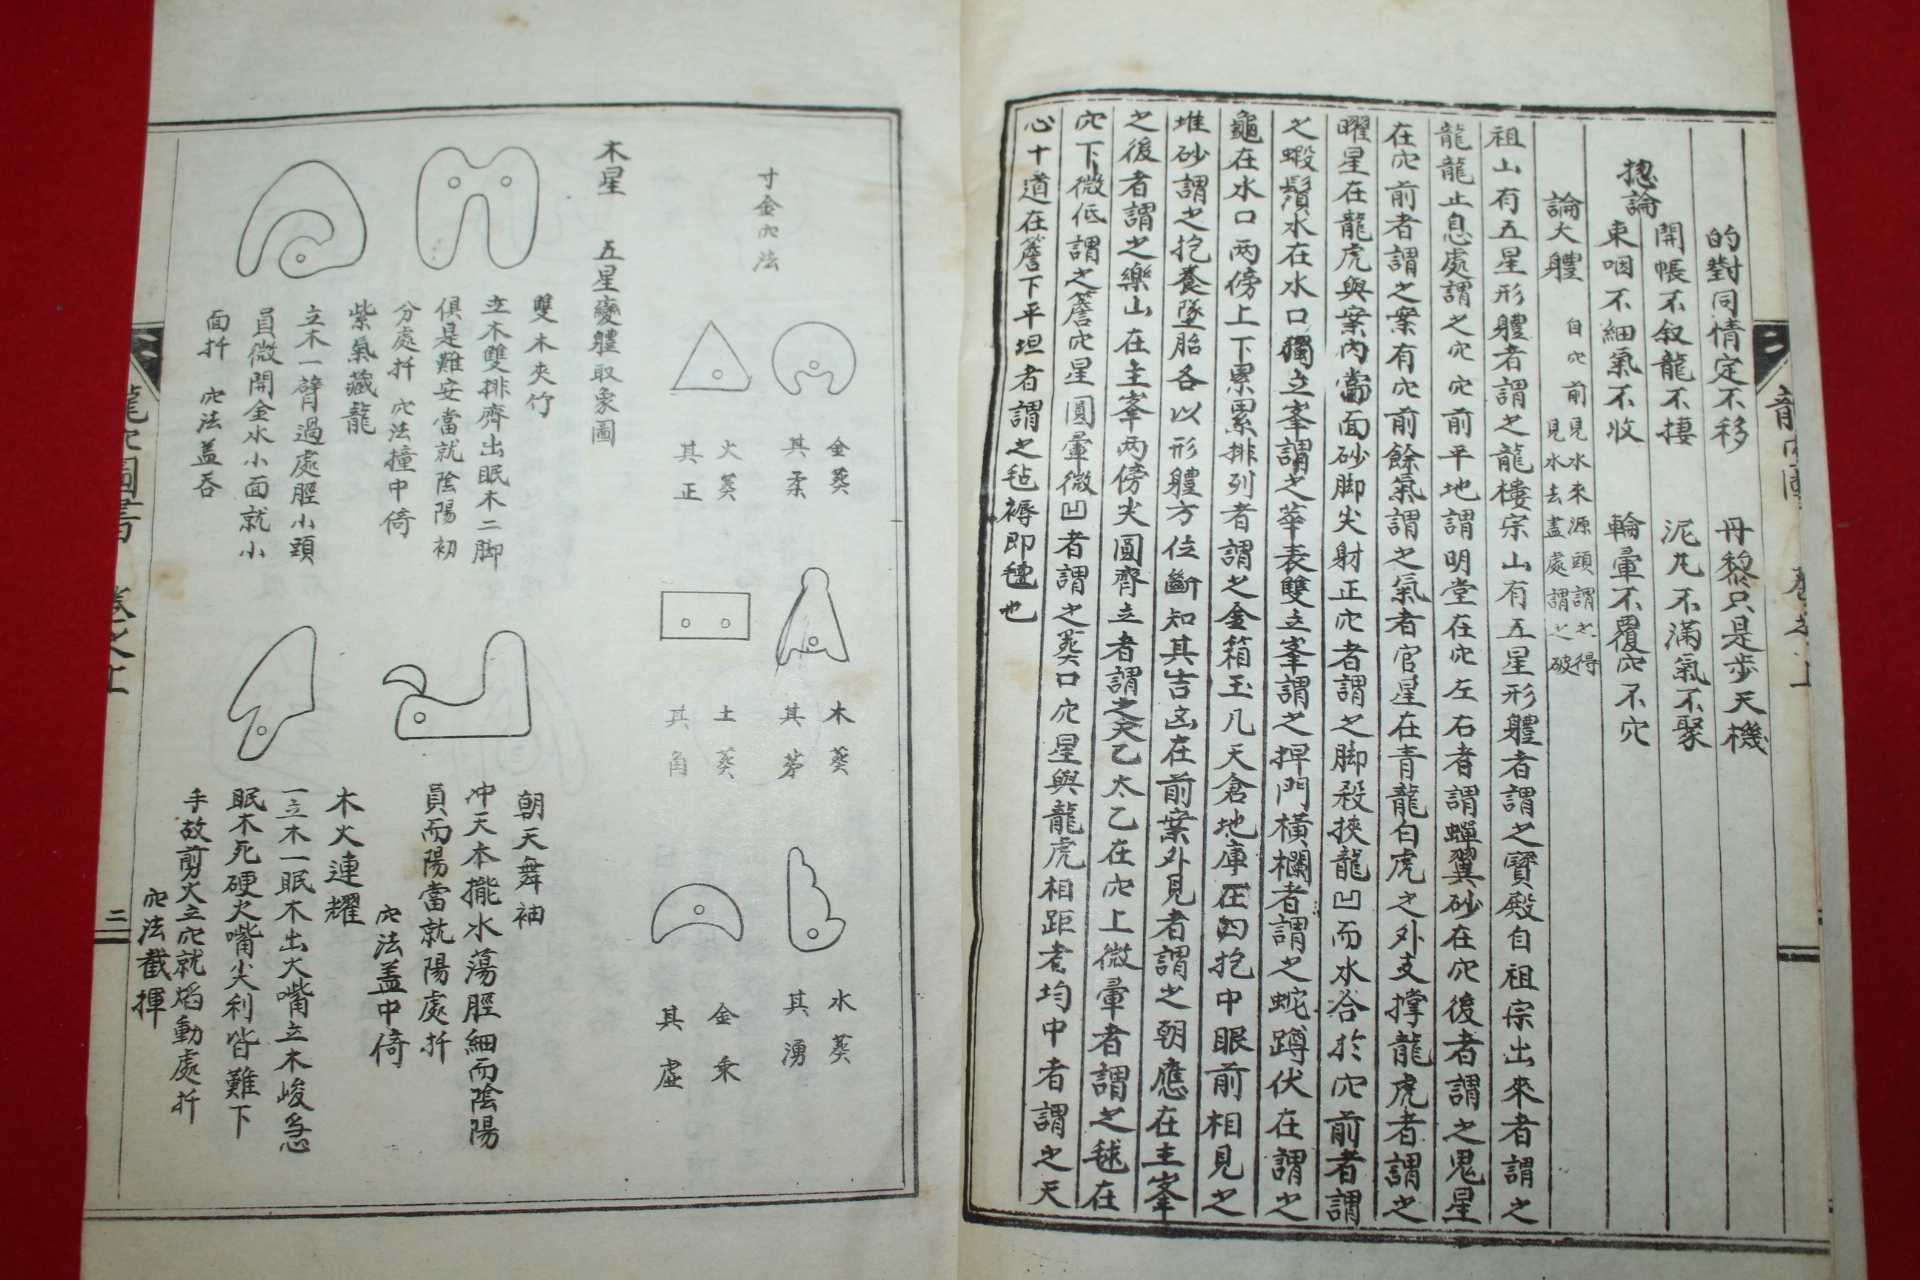 的對同情定不移　丹黎只是步天機
開帳不叙龍不捿　泥丸不滿氣不聚
摠論
束咽不細氣不收　輪暈不覆穴不穴
論大軆　自穴前見水來源頭謂之得
見水去盡處謂之破
祖山有五星形軆者謂之龍樓宗山有五星形軆者謂之寶殿自祖宗出來者謂之
龍龍止息處謂之穴穴前平地謂明堂在穴左右者謂蟬翼砂在穴後者謂之鬼星
在穴前者謂之案有穴前餘氣謂之氣者官星在青龍白虎之外支撑龍虎者謂之
曜星在龍虎與案內當面砂脚尖射正穴者謂之脚殺挾龍凹而水合於穴前者謂
之蝦鬚水在水口獨立峯謂之華表雙立峯謂之捍門橫欄者謂之蛇蹲伏在謂之
龜在水口两傍上下累累排列者謂之金箱玉几天倉地庫在四抱中眼前相見之
堆砂謂之抱養墜胎各以形軆方位斷知其吉凶在前案外見者謂之朝應在主峯
之後者謂之樂山在主峯两傍尖圓齊立者謂之天乙太乙在穴上微暈者謂之毬在
穴下微低謂之簷穴星圓暈微凹者謂之葬口穴星與龍虎相距者均中者謂之天
心十道在簷下平坦者謂之毡褥即毬也
龍穴圖書　卷之上
寸金穴法
金葬其柔
火葬其正
木葬其茅
土葬其角
水葬其湧
金乗其虛
木星　五星變軆取象圖
雙木夾竹
立木雙排齊出眠木二脚
俱是難安當就陰陽初
分處扦　穴法撞中倚
紫氣藏龍
立木一臂過處脛小頭
員微開金水小面就小
面扦　穴法盖吞
朝天舞袖
冲天本擺水蕩脛細而陰陽
員而陽當就陽處扦
穴法盖中倚
木火連耀
一立木一眠木出大嘴立木峻急
眠木死硬火嘴尖利皆難下
手故剪火立穴就焰動處扦
穴法截揮
龍穴圖書　卷之上　二